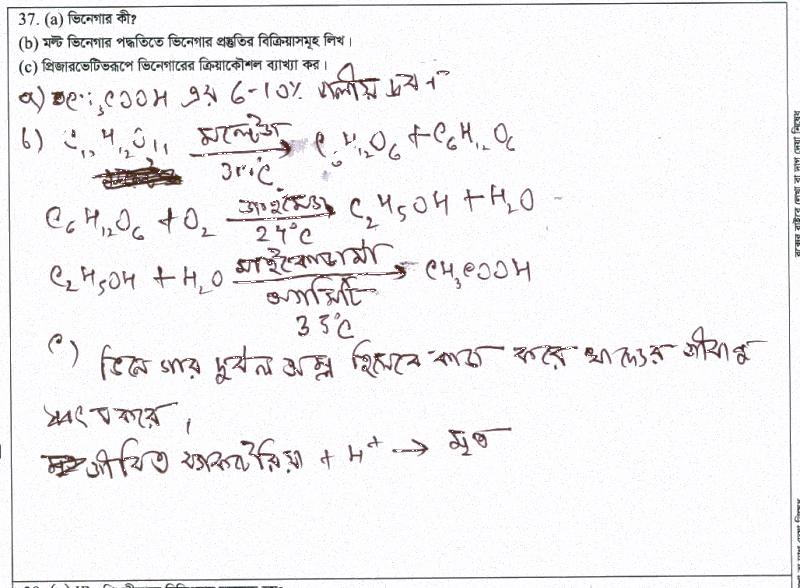 37. (a) ভিনেগার কী?
(b) মল্ট ভিনেগার পদ্ধতিতে ভিনেগার প্রস্তুতির বিক্রিয়াসমূহ লিখ।
(c) প্রিজারভেটিভরূপে ভিনেগারের ক্রিয়াকৌশল ব্যাখ্যা কর।
a) CH₃COOH এর 6-10% জলীয় দ্রবণ
b) C₁₂H₂₂O₁₁ মল্টেজ → C₆H₁₂O₆ + C₆H₁₂O₆
C₆H₁₂O₆ + O₂ জাইমেজ → C₂H₅OH + H₂O
24°C
C₂H₅OH + H₂O মাইকোডার্মা → CH₃COOH
অ্যাসিটি
33°C
c) ভিনেগার দুর্বল অম্ল হিসেবে কাজ করে খাদ্যের জীবাণু
ধ্বংস করে।
জীবিত ব্যাকটেরিয়া + H⁺ → মৃত